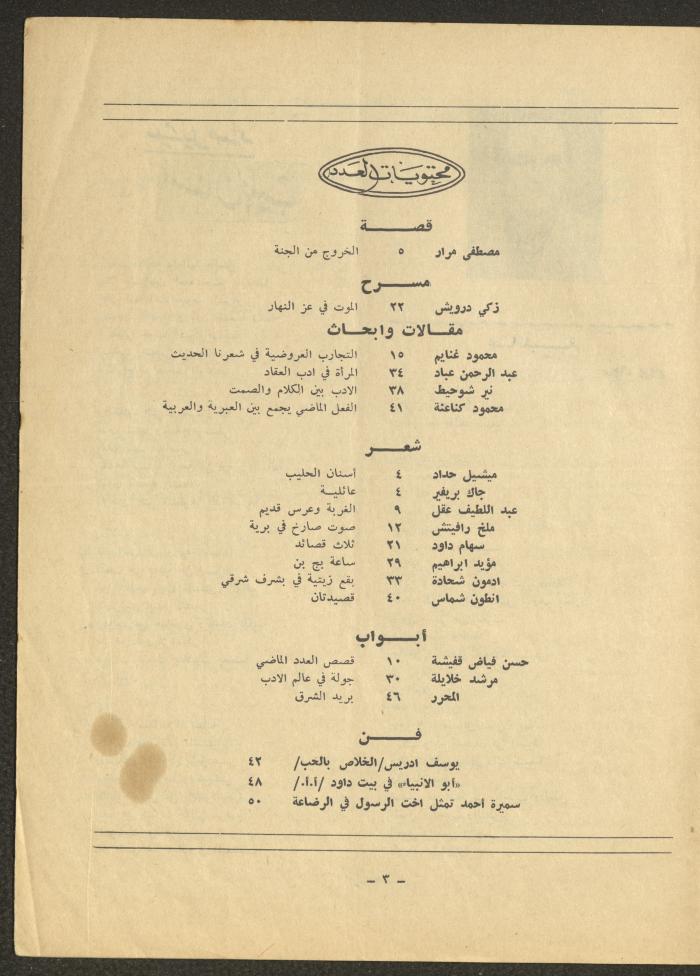 محتويات العدد
قصـــــة
مصطفى مرار ٥ الخروج من الجنة
مســـرح
زكي درويش ٢٢ الموت في عز النهار
مقــالات وابحــاث
محمود غنايم ١٥ التجارب العروضية في شعرنا الحديث
عبد الرحمن عباد ٣٤ المرأة في ادب العقاد
نير شوحيط ٣٨ الادب بين الكلام والصمت
محمود كناعنة ٤١ الفعل الماضي يجمع بين العبرية والعربية
شعـــر
ميشيل حداد ٤ أسنان الحليب
جاك بريفير ٤ عائليــة
عبد اللطيف عقل ٩ الغربة وعرس قديم
ملخ رافيتش ١٢ صوت صارخ في برية
سهام داود ٢١ ثلاث قصائد
مؤيد ابراهيم ٢٩ ساعة بج بن
ادمون شحادة ٣٣ بقع زيتية في بشرف شرقي
انطون شماس ٤٠ قصيدتان
أبـــواب
حسن فياض قفيشة ١٠ قصص العدد الماضي
مرشد خلايلة ٣٠ جولة في عالم الادب
المحرر ٤٦ بريد الشرق
فـــن
يوسف ادريس/الخلاص بالحب/ ٤٢
«أبو الانبياء» في بيت داود /أ.أ./ ٤٨
سميرة أحمد تمثل اخت الرسول في الرضاعة ٥٠
– ٣ –